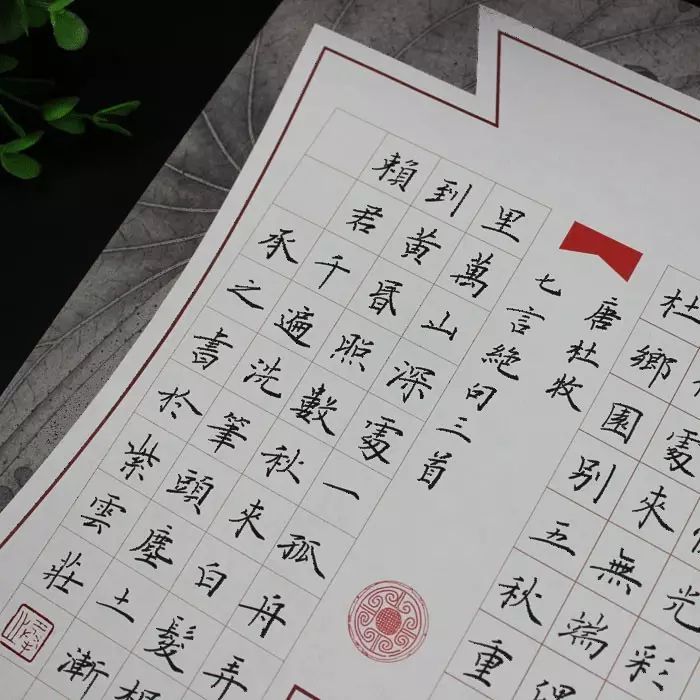 光彩
處來無端
杜鄉園別五秋重
唐杜牧
七言絕句三首
里萬山深處一孤舟弄
到黃昏照數秋來白髮根
賴君千遍洗筆頭塵土漸
承之書於紫雲莊